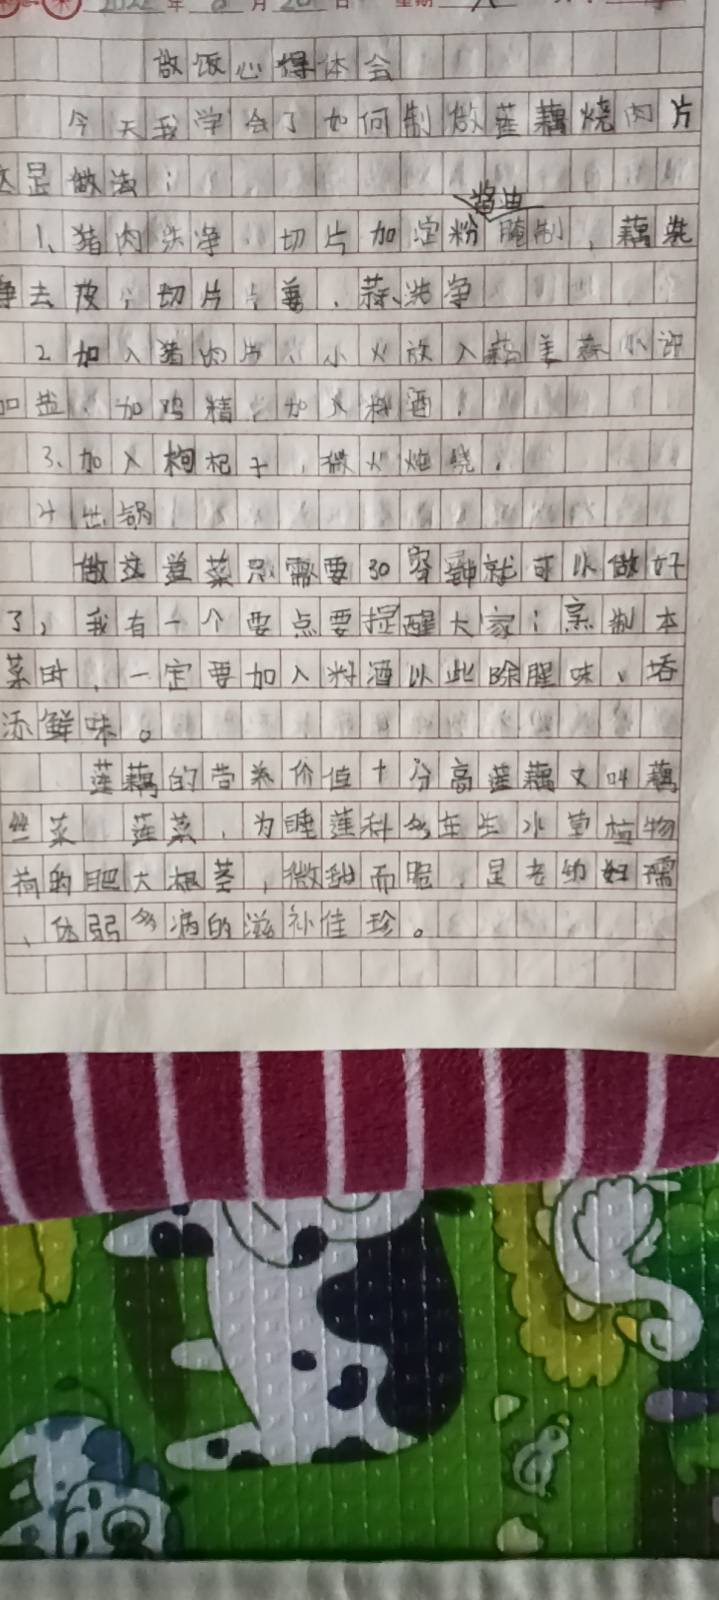 2022年8月20日 星期六
做饭心得体会
今天我学会了如何制做莲藕烧肉片
这是做法：
酱油
1、猪肉洗净，切片加淀粉腌制，藕洗
净去皮，切片，姜、蒜洗净
2 加入猪肉片，小火放入藕姜蒜小许
加盐，加鸡精，加入料酒，
3、加入枸杞子，微火炖烧，
4 出锅
做这道菜只需要30分钟就可以做好
了，我有一个要点要提醒大家；烹制本
菜时，一定要加入料酒以此除腥味、
添鲜味。
莲藕的营养价值十分高莲藕又叫藕
丝菜 莲菜，为睡莲科多年生水草植物
荷的肥大根茎，微甜而脆，是老幼妇孺
、体弱多病的滋补佳珍。